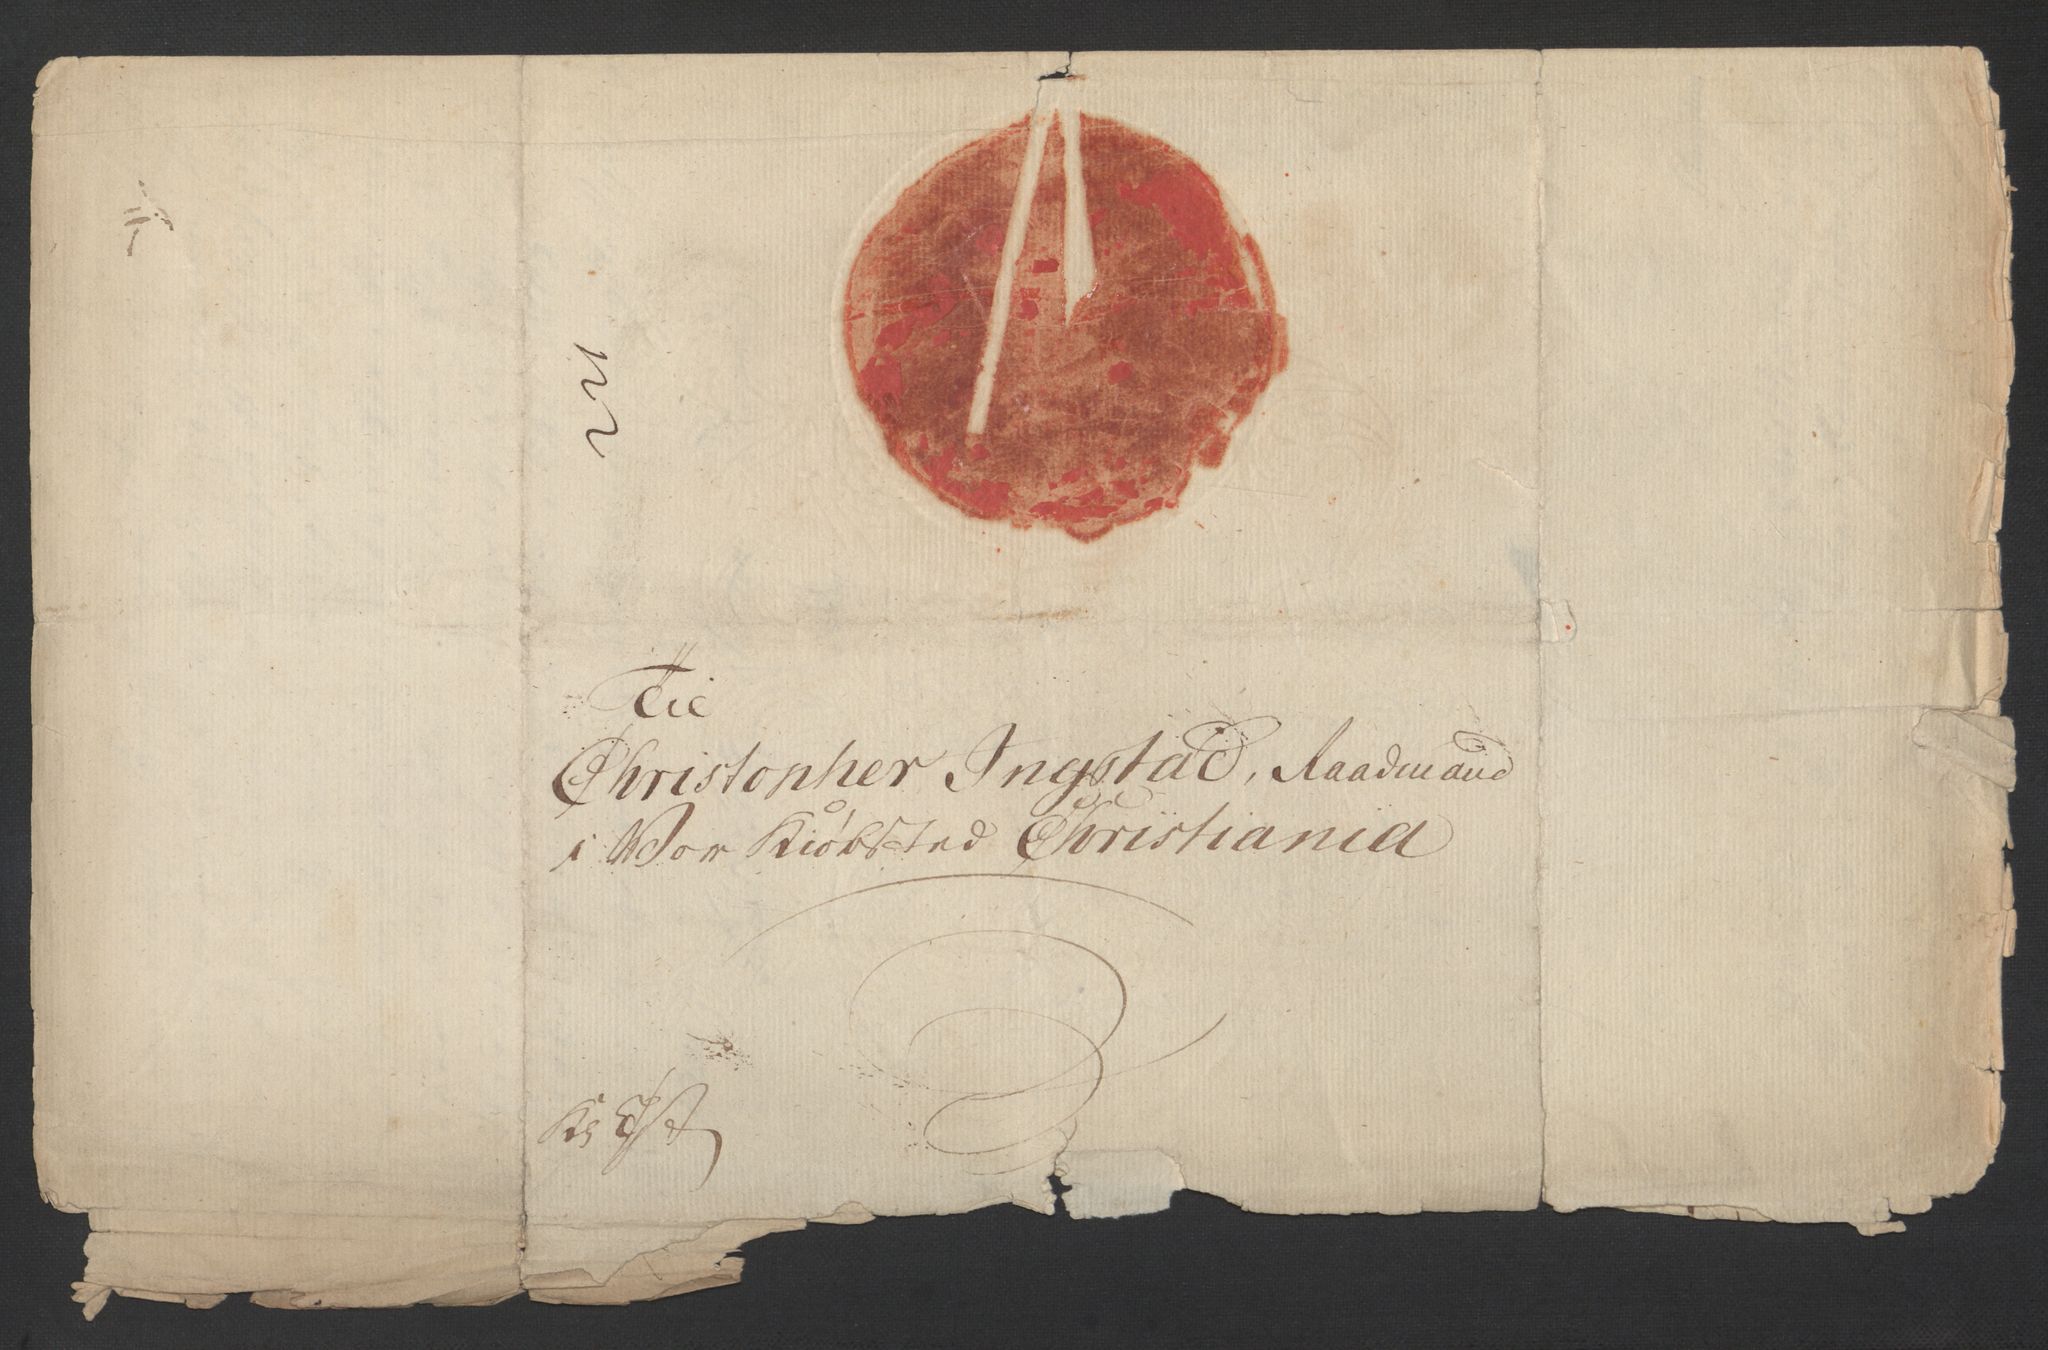 Til
Christopher Ingstad, Raadmand
i Vor Kiøbsted Christiania